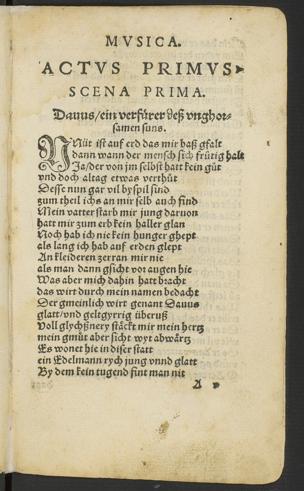 MVSICA.
ACTVS PRIMVS
SCENA PRIMA.
Dauus/ein verfürer deß vnghor-
samen suns.
Nüt ist auf erd das mir baß gfalt
dann wann der mensch sich frütig halt
Ja/der von jm selbst hatt kein güt
vnd doch altag etwas verthüt
Desse nun gar vil byspil sind
zum theil ichs an mir selb auch find
Mein vatter starb mir jung daruon
hatt mir zum erb kein haller glan
Noch hab ich nie kein hunger ghept
als lang ich hab auf erden glept
An kleideren zerran mir nie
als man dann gsicht vor augen hie
Was aber mich dahin hatt bracht
das wirt durch mein namen bedacht
Der gmeinlich wirt genant Dauus
glatt/vnd geltgyrrig überuß
Voll glychßnery stäckt mir mein hertz
mein gmüt aber sicht wyt abwärtz
Es wonet hie in diser statt
ein Edelmann rych jung vnnd glatt
By dem kein tugend fint man nit
A